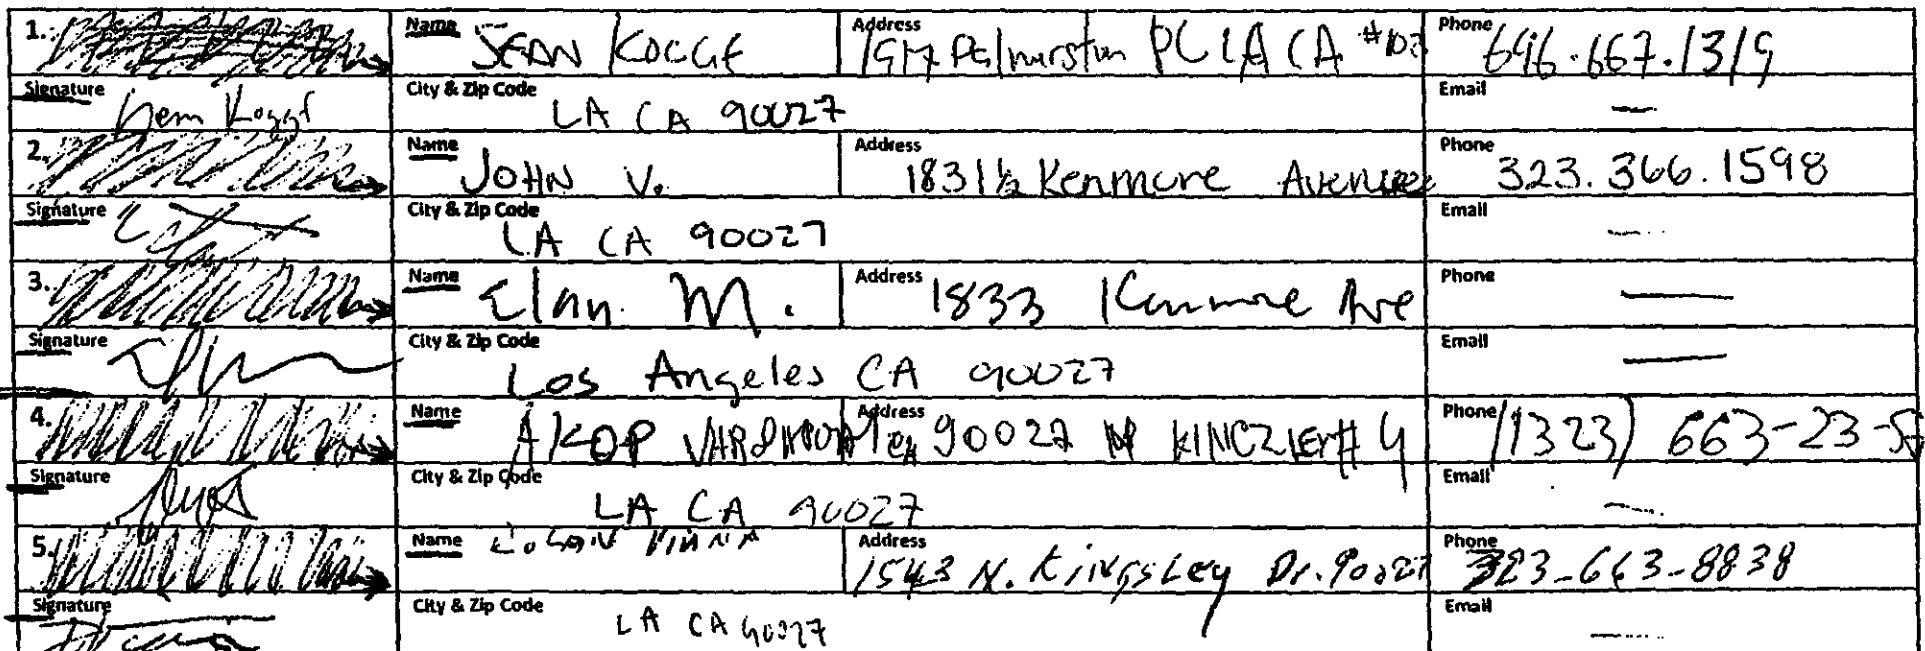 1. Name JEAN KOGGE Address PL LA CA Phone 646.667.1319
Signature City & Zip Code LA CA 90027 Email —
2. Name JOHN V. Address 1831½ Kenmore Avenue Phone 323.366.1598
Signature City & Zip Code LA CA 90027 Email —
3. Name Elan M. Address 1833 Kenmore Ave Phone —
Signature City & Zip Code Los Angeles CA 90027 Email —
4. Name AKOP Address 90027 # 4 Phone (1323) 663-23-5
Signature City & Zip Code LA CA 90027 Email —
5. Name Address 1543 N. Kingsley Dr. 90027 Phone 323-663-8838
Signature City & Zip Code LA CA 90027 Email —